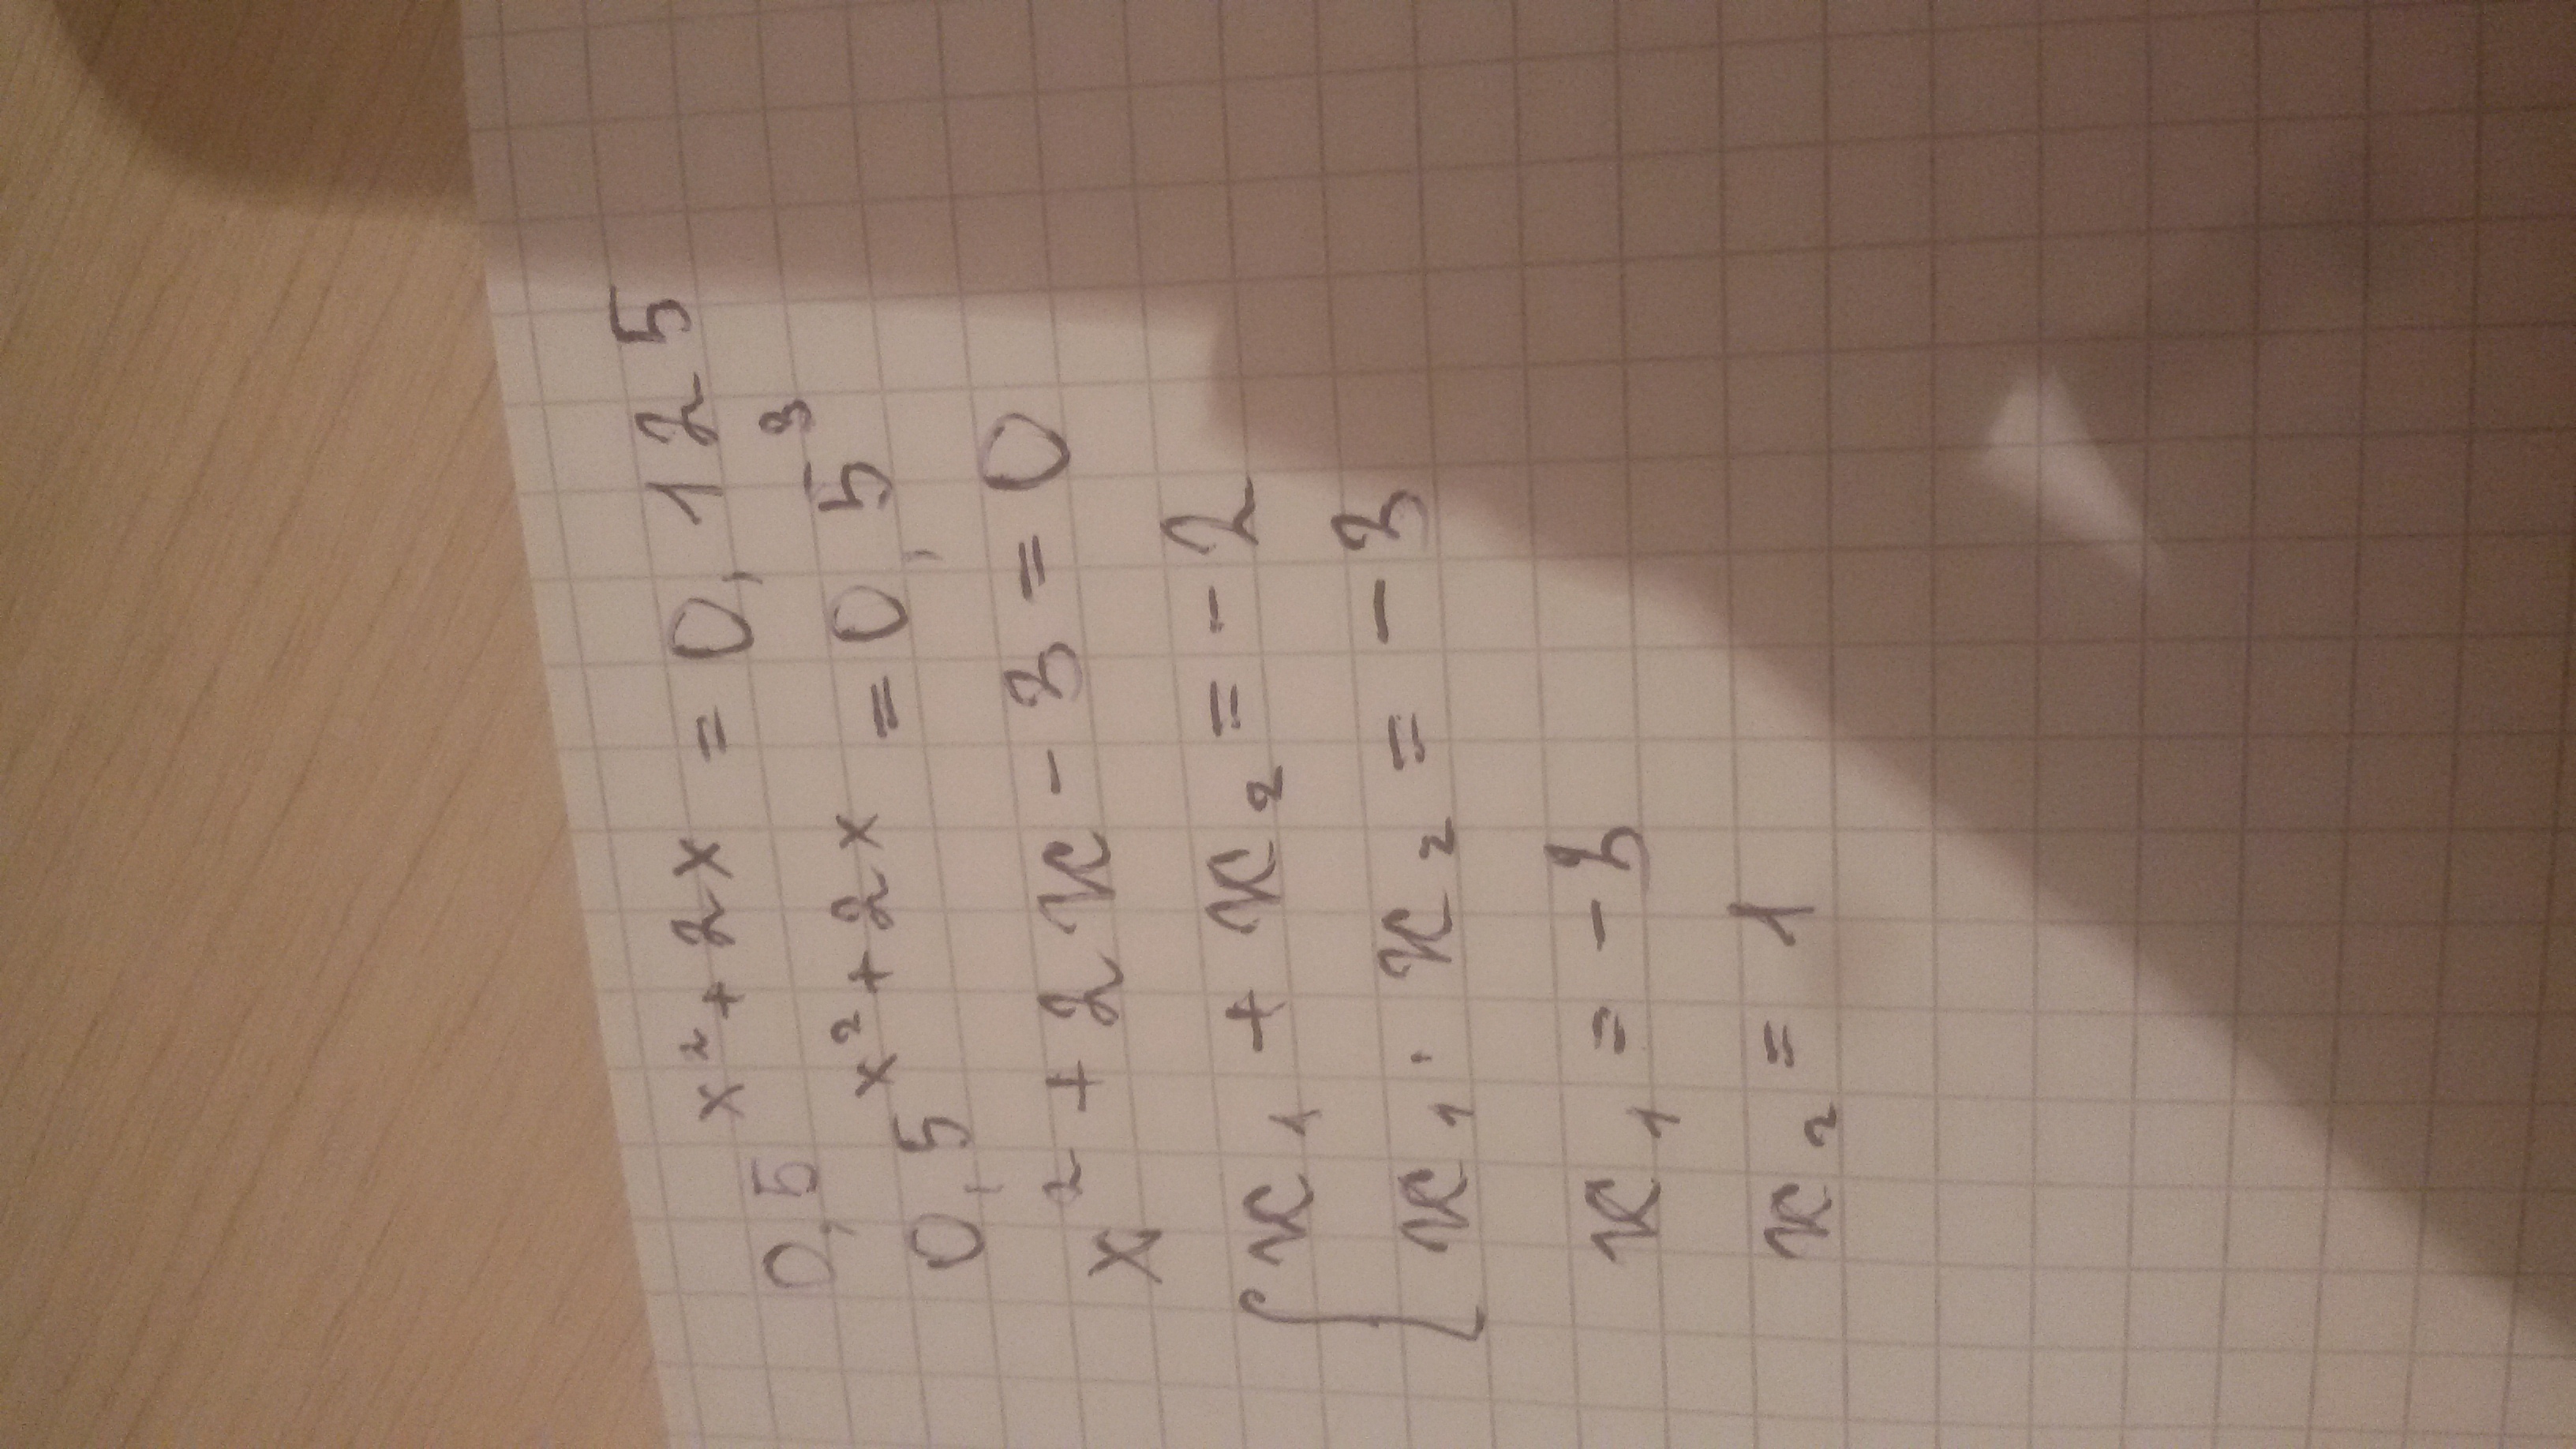 0,5^(x²+2x) = 0,125
0,5^(x²+2x) = 0,5³
x² + 2x - 3 = 0
{ x₁ + x₂ = -2
x₁ · x₂ = -3
x₁ = -3
x₂ = 1